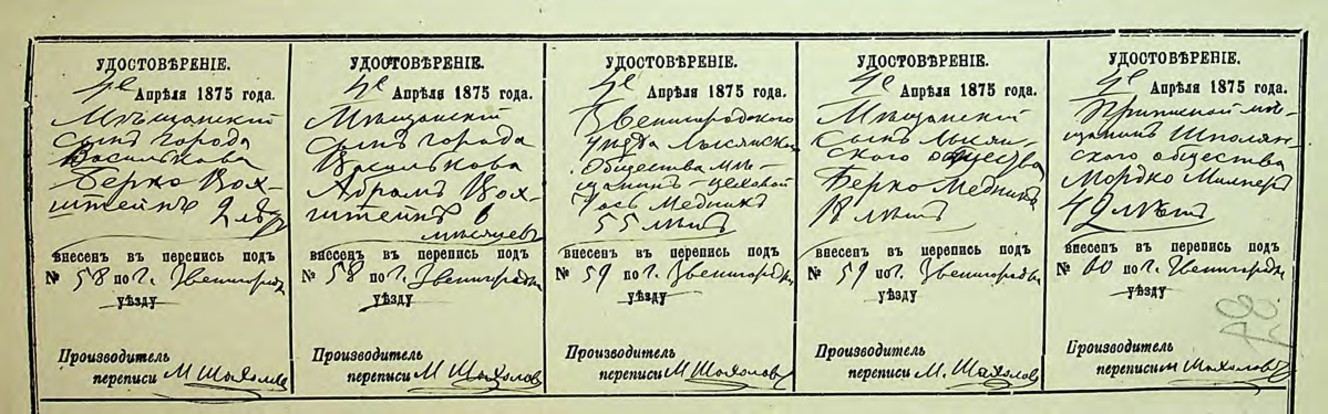 УДОСТОВѢРЕНІЕ.
4го Апрѣля 1875 года.
Мѣщанскій
сынъ города
Василькова
Берко Вох-
штейнъ 2 лѣтъ
внесенъ въ перепись подъ
№ 58 по г. Звенигородкѣ
уѣзду
Производитель
переписи М Шахолов
УДОСТОВѢРЕНІЕ.
4го Апрѣля 1875 года.
Мѣщанскій
сынъ города
Василькова
Абрамъ Вох-
штейнъ 6
мѣсяцевъ
внесенъ въ перепись подъ
№ 58 по г. Звенигородкѣ
уѣзду
Производитель
переписи М Шахолов
УДОСТОВѢРЕНІЕ.
4го Апрѣля 1875 года.
Звенигородского
уѣзда Лысянского
Общества мѣ-
щанинъ-цеховой
Іось Медникъ
55 лѣтъ
внесенъ въ перепись подъ
№ 59 по г. Звенигородкѣ
уѣзду
Производитель
переписи М Шахолов
УДОСТОВѢРЕНІЕ.
4го Апрѣля 1875 года.
Мѣщанскій
сынъ Лысян-
ского общества
Берко Медникъ
18 лѣтъ
внесенъ въ перепись подъ
№ 59 по г. Звенигородкѣ
уѣзду
Производитель
переписи М. Шахолов
УДОСТОВѢРЕНІЕ.
4го Апрѣля 1875 года.
Приписной мѣ-
щанинъ Шполян-
ского общества
Мордко Миллеръ
42 лѣтъ
внесенъ въ перепись подъ
№ 60 по г. Звенигородкѣ
уѣзду
Производитель
переписи М Шахолов